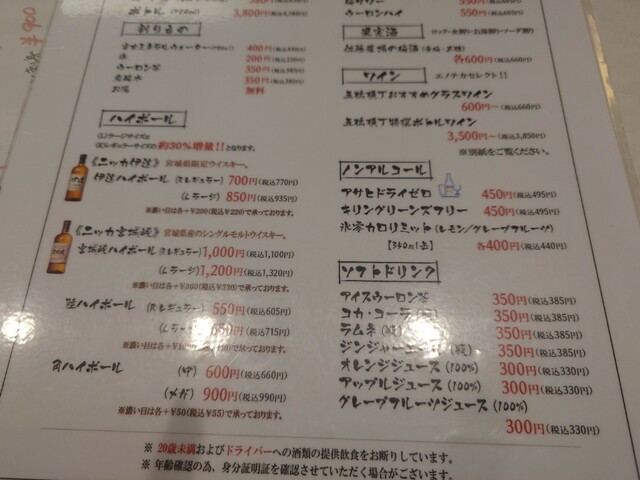 ¥900
ボトル 3,800円
割りもの
400円(税込440円)
水 200円(税込220円)
ウーロン茶 350円(税込385円)
炭酸水 350円(税込385円)
お湯 無料
ハイボール
(L)ラージサイズは
(R)レギュラーサイズの約30%増量!!となります。
《ニッカ伊達》宮城県限定ウイスキー。
伊達ハイボール(Rレギュラー) 700円(税込770円)
(Lラージ) 850円(税込935円)
※濃い目は各+¥200(税込¥220)で承っております。
《ニッカ宮城峡》宮城県産のシングルモルトウイスキー。
宮城峡ハイボール(Rレギュラー) 1,000円(税込1,100円)
(Lラージ) 1,200円(税込1,320円)
で承っております。
ハイボール (Rレギュラー) 550円(税込605円)
(Lラージ) 650円(税込715円)
で承っております。
角ハイボール (中) 600円(税込660円)
(メガ) 900円(税込990円)
※濃い目は各+¥50(税込¥55)で承っております。
ウーロンハイ 550円(税込605円)
果実酒 ロック・水割り・お湯割り・ソーダ割り
各600円(税込660円)
ワイン エノテカセレクト!!
おすすめグラスワイン
600円〜(税込660円)
ボトルワイン
3,500円〜(税込3,850円)
※別紙をご覧ください。
ノンアルコール
アサヒドライゼロ 450円(税込495円)
キリングリーンズフリー 450円(税込495円)
氷零カロリミット(レモン/グレープフルーツ)
【350ml缶】 各400円(税込440円)
ソフトドリンク
アイスウーロン茶 350円(税込385円)
コカ・コーラ(瓶) 350円(税込385円)
ラムネ(瓶) 350円(税込385円)
ジンジャーエール(瓶) 350円(税込385円)
オレンジジュース(100%) 300円(税込330円)
アップルジュース(100%) 300円(税込330円)
グレープフルーツジュース(100%)
300円(税込330円)
※ 20歳未満およびドライバーへの酒類の提供飲食をお断りしています。
※ 年齢確認の為、身分証明証を確認させていただく場合がございます。